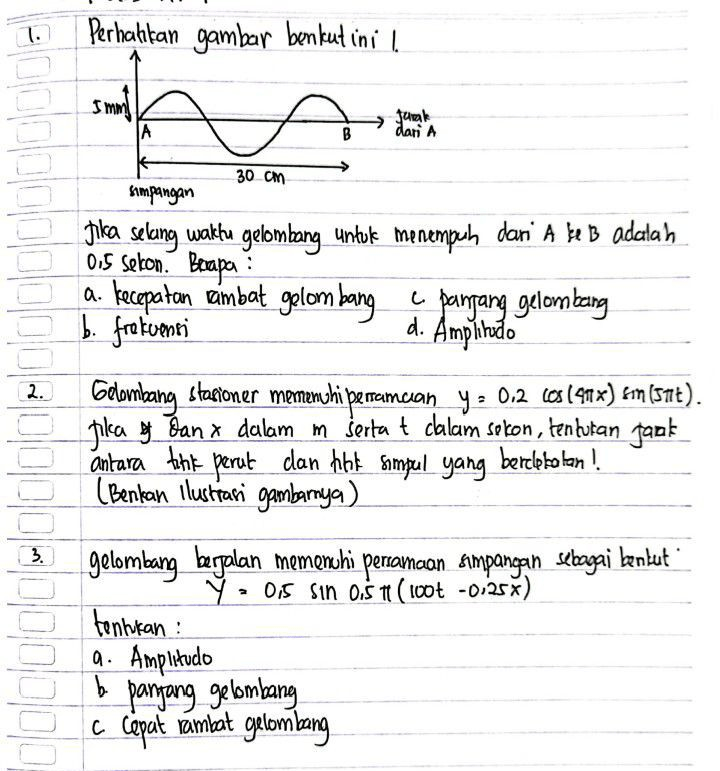 1. Perhatikan gambar berikut ini !
5 mm
A
B
jarak
dari A
30 cm
simpangan
jika selang waktu gelombang untuk menempuh dari A ke B adalah
0,5 sekon. Berapa :
a. kecepatan rambat gelombang c. panjang gelombang
b. frekuensi d. Amplitudo
2. Gelombang stasioner memenuhi persamaan y = 0,2 cos(4πx) sin(5πt).
jika y dan x dalam m serta t dalam sekon, tentukan jarak
antara titik perut dan titik simpul yang berdekatan !
(Berikan ilustrasi gambarnya)
3. gelombang berjalan memenuhi persamaan simpangan sebagai berikut
Y = 0,5 sin 0,5 π (100t - 0,25x)
tentukan :
a. Amplitudo
b. panjang gelombang
c. Cepat rambat gelombang